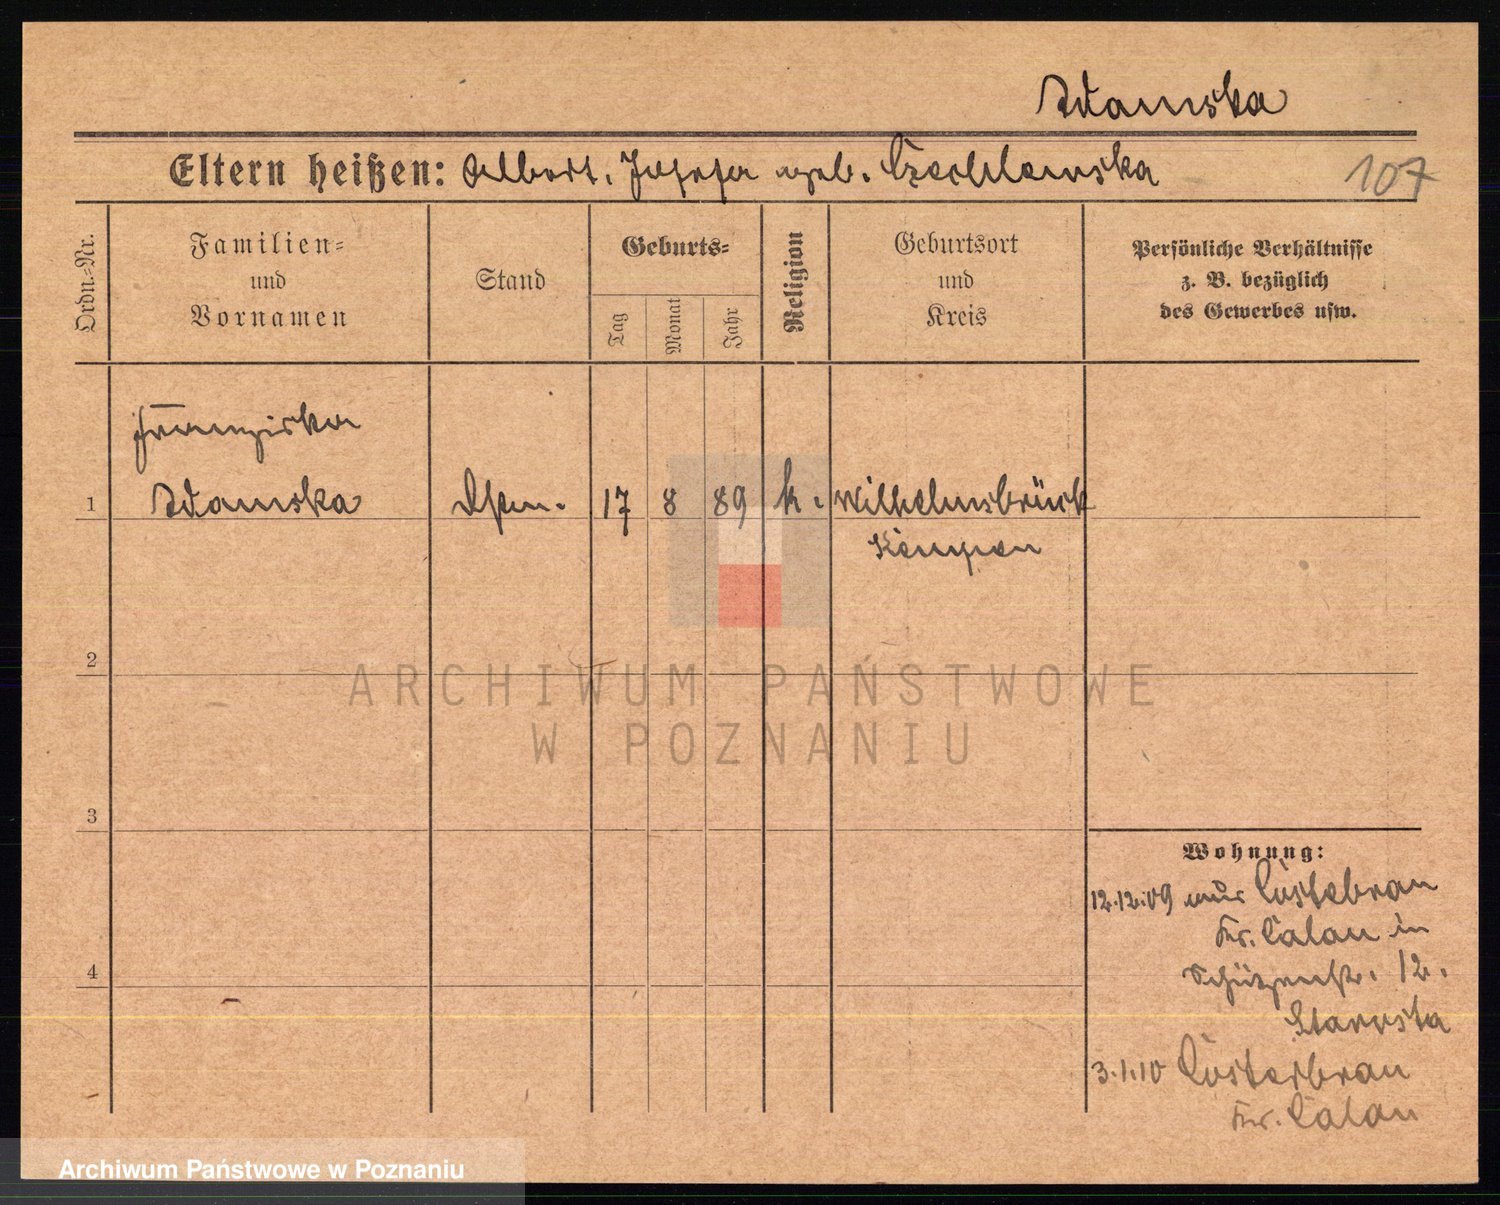 Adamska
Eltern heißen: Albert, Josefa geb. Czechlewska
107
Ordn.=Nr.
Familien=
und
Vornamen
Stand
Geburts=
Tag
Monat
Jahr
Religion
Geburtsort
und
Kreis
Persönliche Verhältnisse
z. B. bezüglich
des Gewerbes usw.
Franziska
1 Adamska 17 8 89 k. Wilhelmsbrück
Kempen
2
3
4
Wohnung:
12.12.09 aus Costebrau
Kr. Calau in
Schützenstr. 12.
3.1.10 Costebrau
Kr. Calau
ARCHIWUM PAŃSTWOWE
W POZNANIU
Archiwum Państwowe w Poznaniu